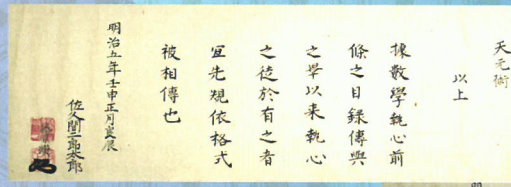 天元術
以上
揀數學執心前
條之目録傳與
之畢以来執心
之徒於有之者
宜先規依格式
被相傳也
明治五年壬申正月良辰
佐久間二郎太郎